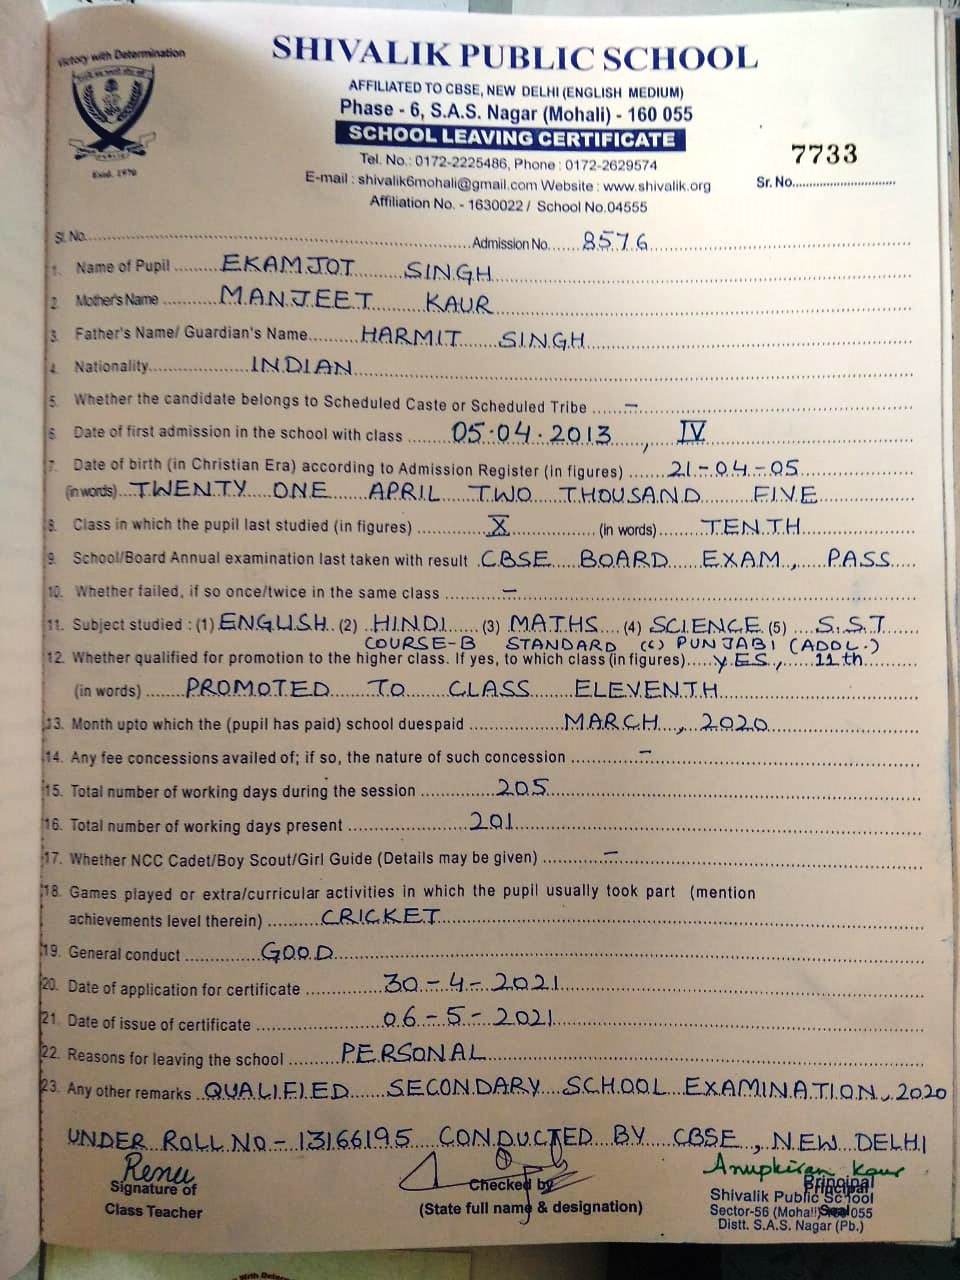 Victory with Determination
SHIVALIK PUBLIC SCHOOL
AFFILIATED TO CBSE, NEW DELHI (ENGLISH MEDIUM)
Phase - 6, S.A.S. Nagar (Mohali) - 160 055
SCHOOL LEAVING CERTIFICATE
PUBLIC
Estd. 1970
Tel. No.: 0172-2225486, Phone : 0172-2629574
7733
E-mail : shivalik6mohali@gmail.com Website : www.shivalik.org
Sr. No.
Affiliation No. - 1630022 / School No.04555
Sl. No. Admission No. 8576
1. Name of Pupil EKAMJOT SINGH
2. Mother's Name MANJEET KAUR
3. Father's Name/ Guardian's Name HARMIT SINGH
4. Nationality INDIAN
5. Whether the candidate belongs to Scheduled Caste or Scheduled Tribe –
6. Date of first admission in the school with class 05.04.2013, IV
7. Date of birth (in Christian Era) according to Admission Register (in figures) 21-04-05
(in words) TWENTY ONE APRIL TWO THOUSAND FIVE
8. Class in which the pupil last studied (in figures) X (in words) TENTH
9. School/Board Annual examination last taken with result CBSE BOARD EXAM, PASS
10. Whether failed, if so once/twice in the same class –
11. Subject studied : (1) ENGLISH (2) HINDI (3) MATHS (4) SCIENCE (5) S.S.T
COURSE-B STANDARD (6) PUNJABI (ADDL.)
12. Whether qualified for promotion to the higher class. If yes, to which class (in figures) YES, 11th
(in words) PROMOTED TO CLASS ELEVENTH
13. Month upto which the (pupil has paid) school duespaid MARCH, 2020
14. Any fee concessions availed of; if so, the nature of such concession –
15. Total number of working days during the session 205
16. Total number of working days present 201
17. Whether NCC Cadet/Boy Scout/Girl Guide (Details may be given) –
18. Games played or extra/curricular activities in which the pupil usually took part (mention
achievements level therein) CRICKET
19. General conduct GOOD
20. Date of application for certificate 30-4-2021
21. Date of issue of certificate 06-5-2021
22. Reasons for leaving the school PERSONAL
23. Any other remarks QUALIFIED SECONDARY SCHOOL EXAMINATION, 2020
UNDER ROLL NO - 13166195 CONDUCTED BY CBSE, NEW DELHI
Renu
Signature of
Class Teacher
Checked by
(State full name & designation)
Anupkiran Kaur
Principal
Principal
Shivalik Public School
Seal
Sector-56 (Mohali) 160 055
Distt. S.A.S. Nagar (Pb.)